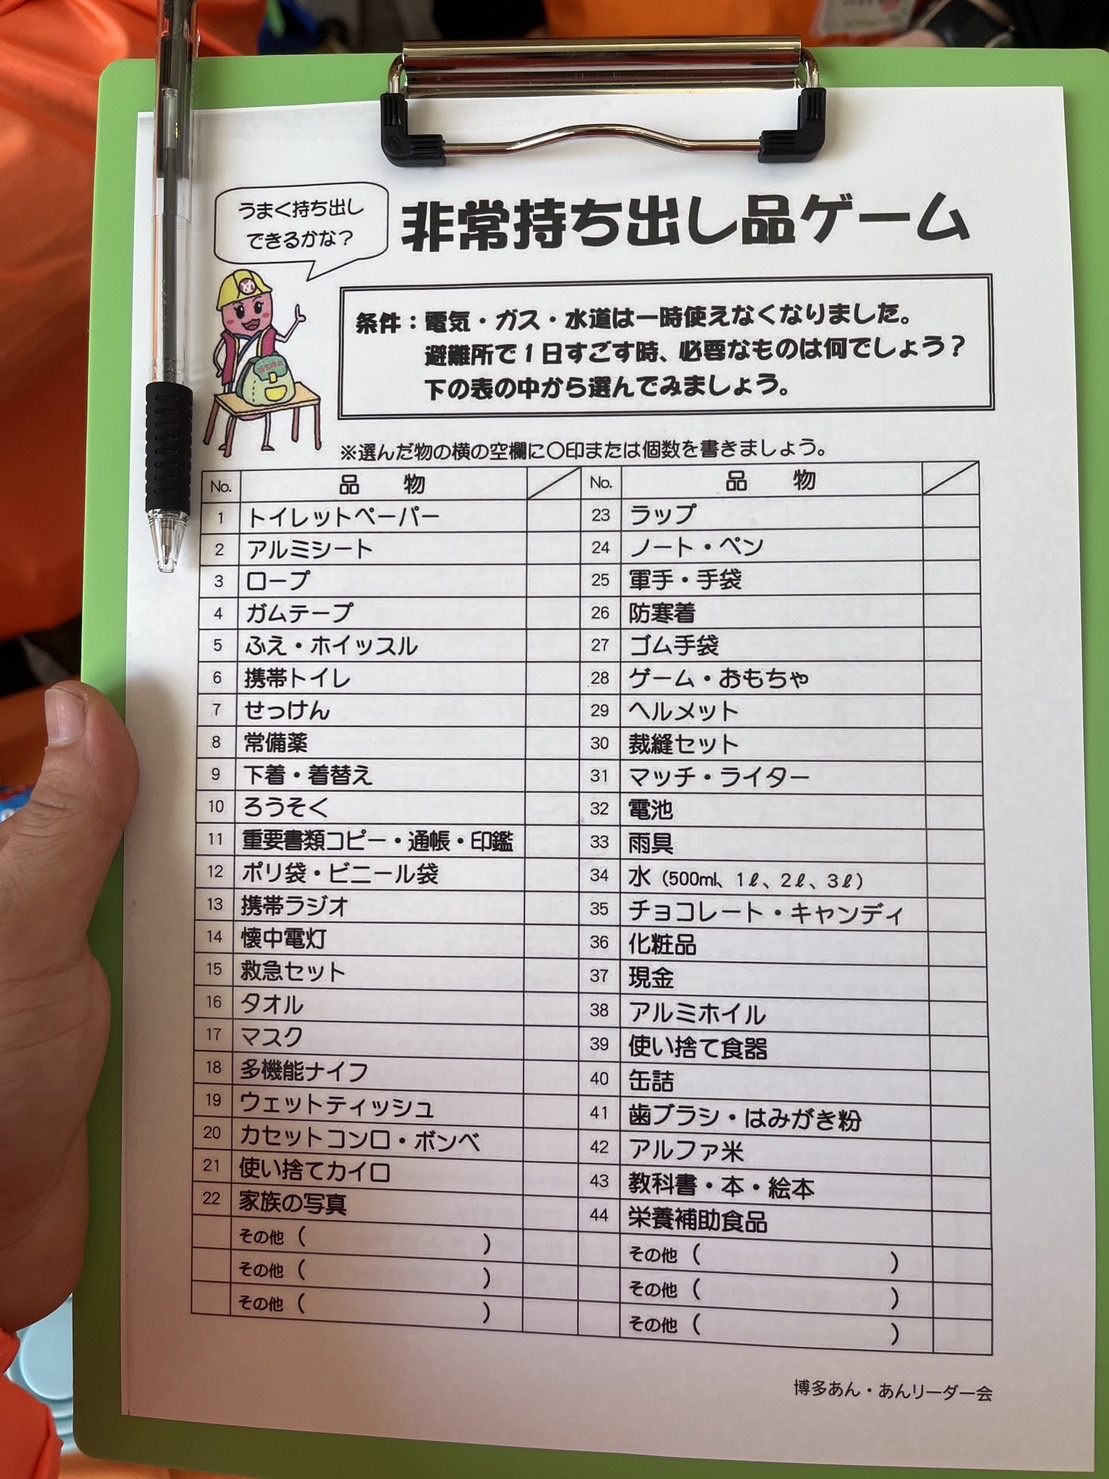 うまく持ち出し
できるかな?
非常持ち出し品ゲーム
条件:電気・ガス・水道は一時使えなくなりました。
避難所で1日すごす時、必要なものは何でしょう?
下の表の中から選んでみましょう。
※選んだ物の横の空欄に〇印または個数を書きましょう。
No. 品 物
1 トイレットペーパー
2 アルミシート
3 ロープ
4 ガムテープ
5 ふえ・ホイッスル
6 携帯トイレ
7 せっけん
8 常備薬
9 下着・着替え
10 ろうそく
11 重要書類コピー・通帳・印鑑
12 ポリ袋・ビニール袋
13 携帯ラジオ
14 懐中電灯
15 救急セット
16 タオル
17 マスク
18 多機能ナイフ
19 ウェットティッシュ
20 カセットコンロ・ボンベ
21 使い捨てカイロ
22 家族の写真
その他( )
その他( )
その他( )
No. 品 物
23 ラップ
24 ノート・ペン
25 軍手・手袋
26 防寒着
27 ゴム手袋
28 ゲーム・おもちゃ
29 ヘルメット
30 裁縫セット
31 マッチ・ライター
32 電池
33 雨具
34 水(500ml、1ℓ、2ℓ、3ℓ)
35 チョコレート・キャンディ
36 化粧品
37 現金
38 アルミホイル
39 使い捨て食器
40 缶詰
41 歯ブラシ・はみがき粉
42 アルファ米
43 教科書・本・絵本
44 栄養補助食品
その他( )
その他( )
その他( )
博多あん・あんリーダー会